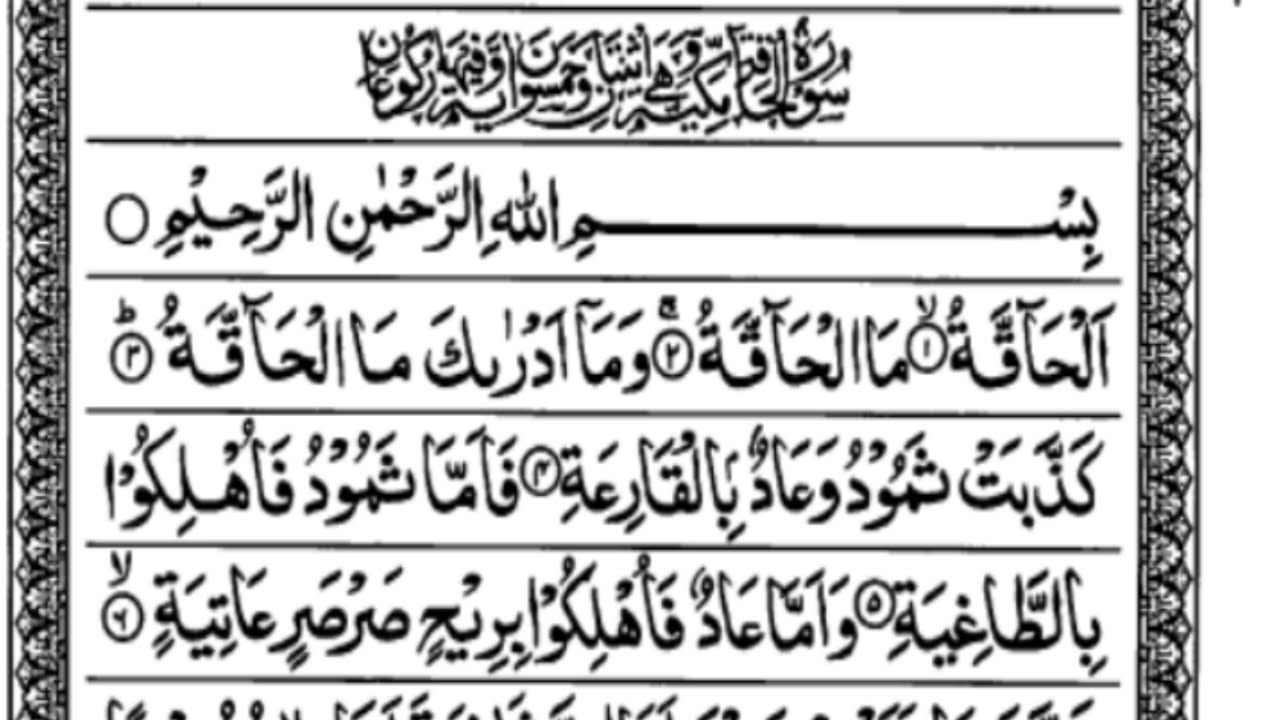 سُوْرَةُ الْحَاقَّةِ مَكِّيَّةٌ وَّهِيَ اثْنَتَانِ وَخَمْسُوْنَ اٰيَةً وَّفِيْهَا رُكُوْعَانِ
بِسْمِ اللّٰهِ الرَّحْمٰنِ الرَّحِيْمِ ○
اَلْحَآقَّةُ ۙ﴿۱﴾ مَا الْحَآقَّةُ ۚ﴿۲﴾ وَمَاۤ اَدْرٰىكَ مَا الْحَآقَّةُ ؕ﴿۳﴾
كَذَّبَتْ ثَمُوْدُ وَعَادٌۢ بِالْقَارِعَةِ ﴿۴﴾ فَاَمَّا ثَمُوْدُ فَاُهْلِكُوْا
بِالطَّاغِيَةِ ﴿۵﴾ وَاَمَّا عَادٌ فَاُهْلِكُوْا بِرِيْحٍ صَرْصَرٍ عَاتِيَةٍ ۙ﴿۶﴾